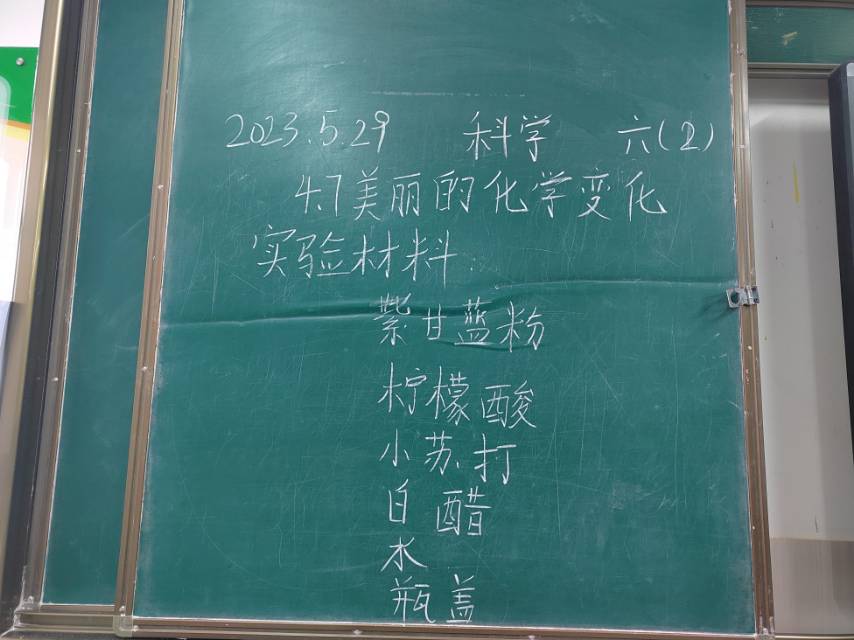 2023.5.29 科学 六(2)
4.7美丽的化学变化
实验材料:
紫甘蓝粉
柠檬酸
小苏打
白醋
水
瓶盖